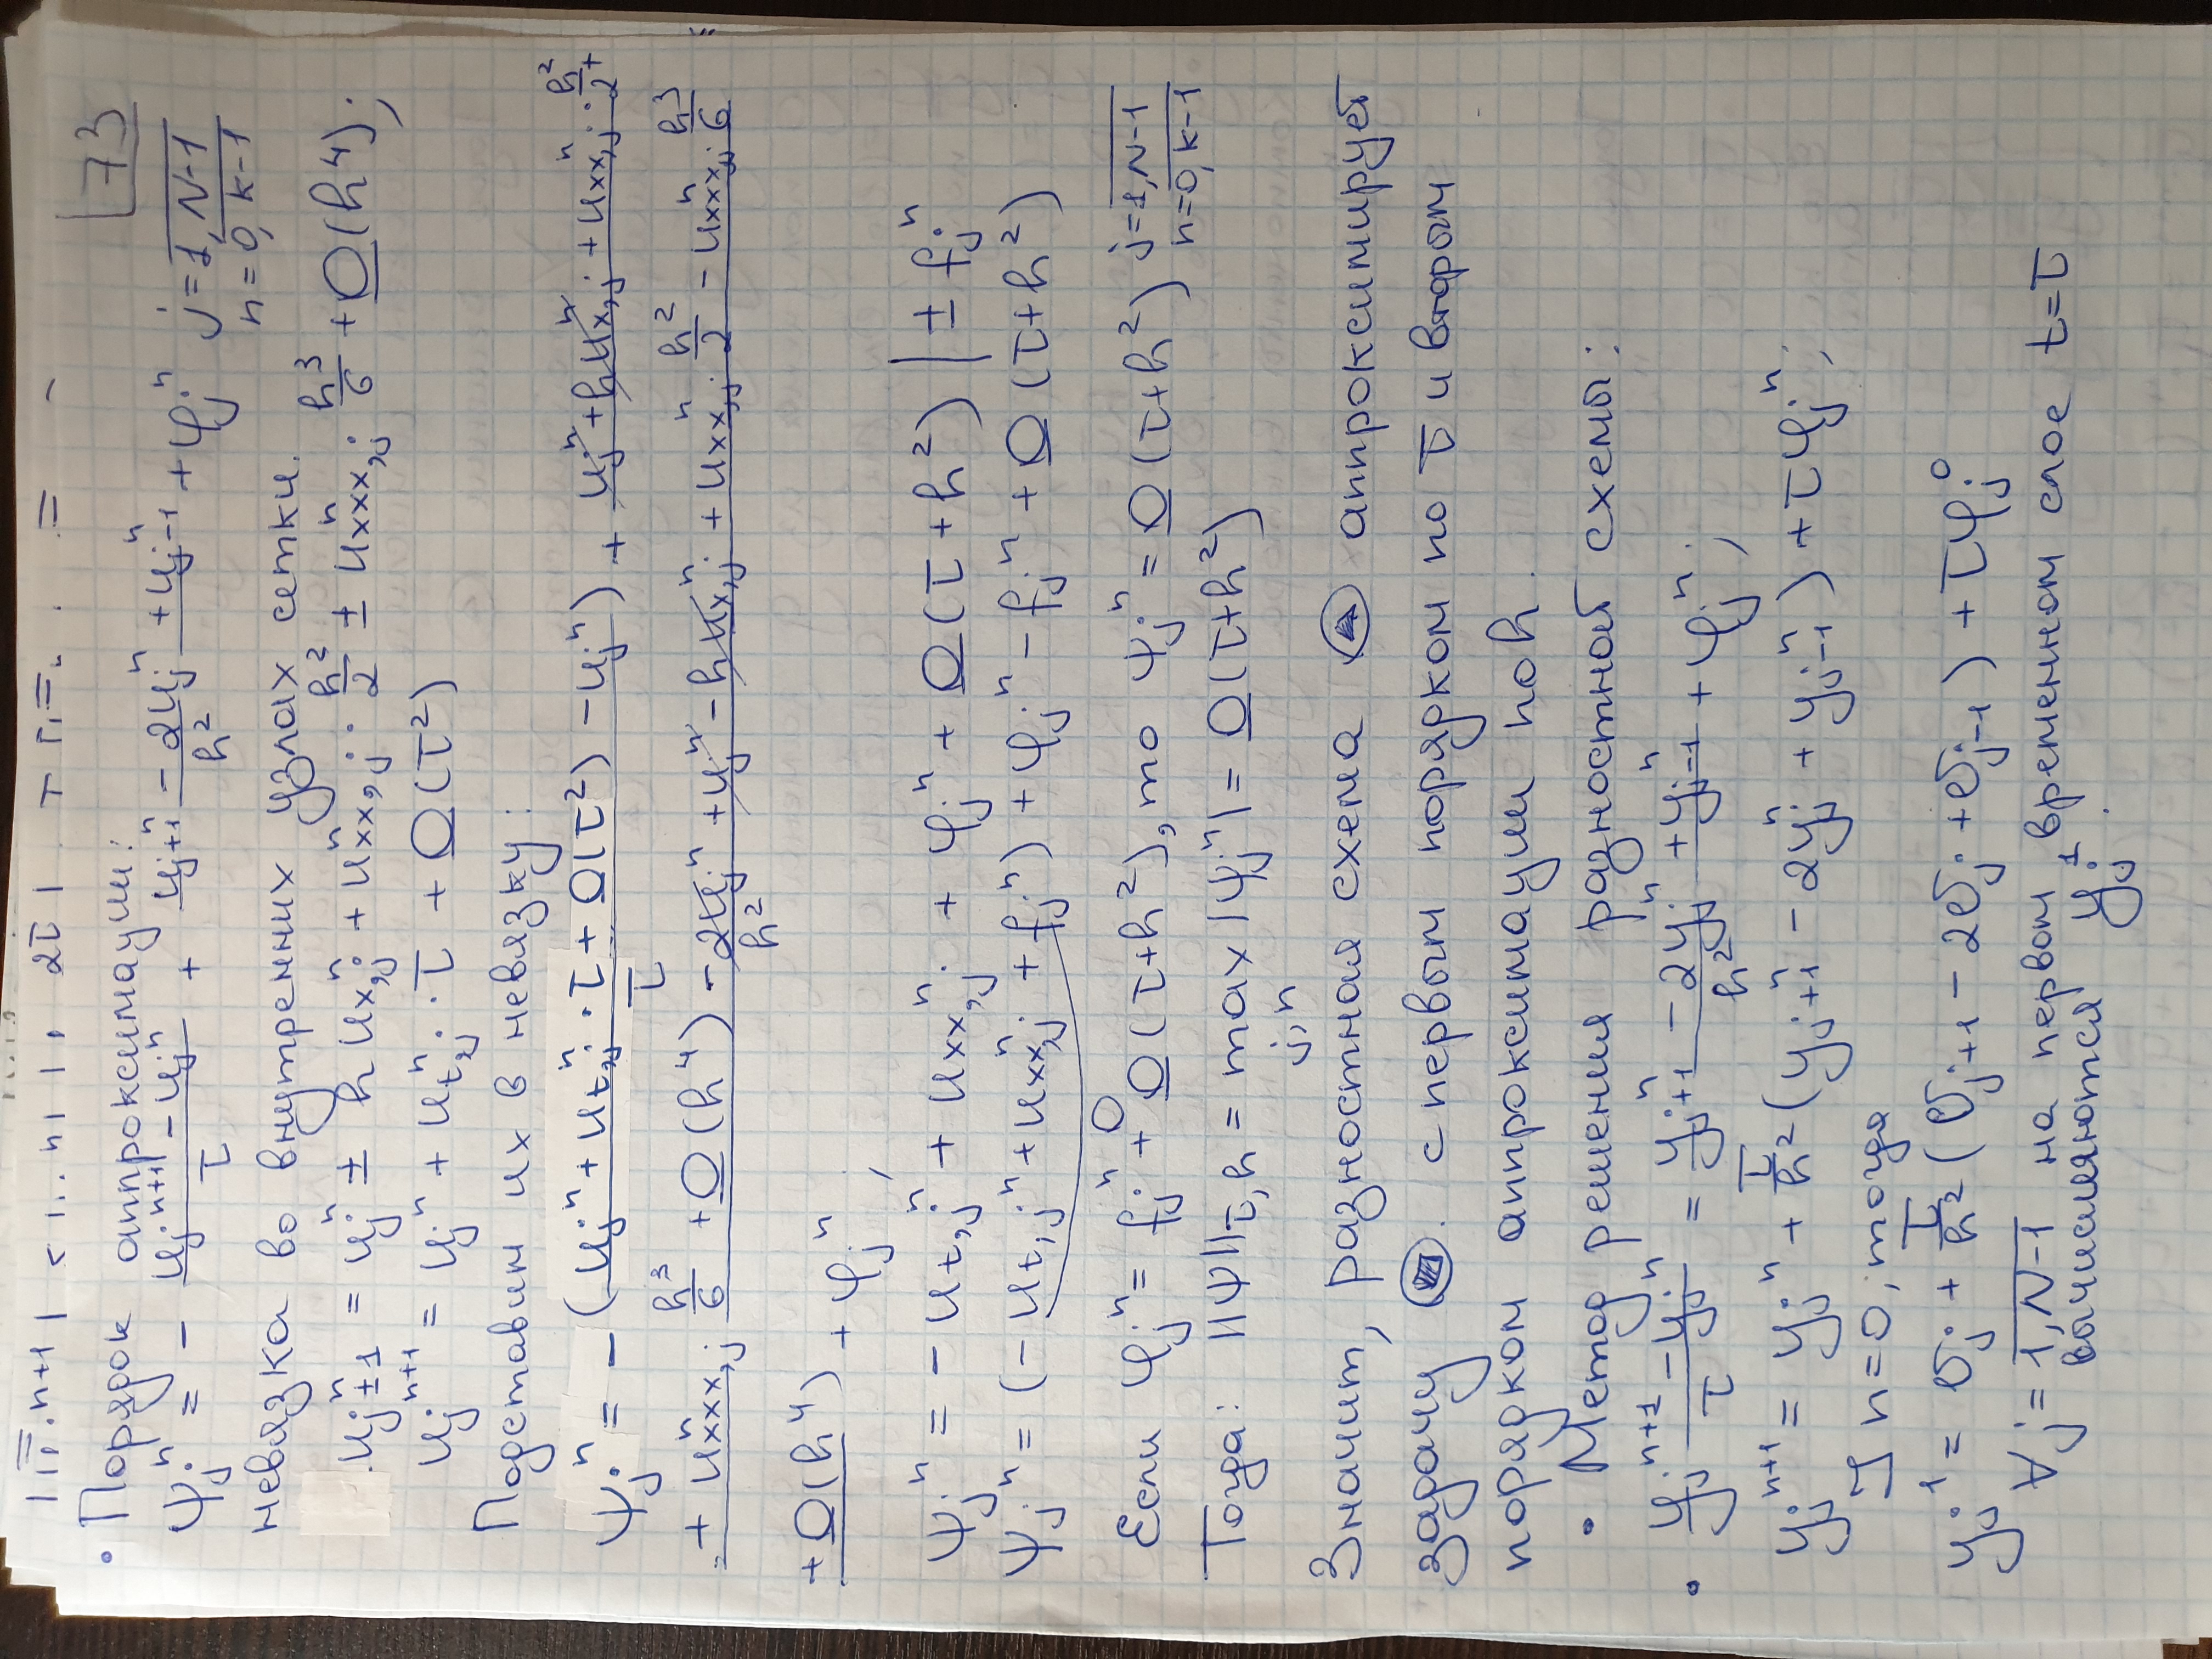 73
• Порядок аппроксимации:
ψⱼⁿ = − (uⱼⁿ⁺¹ − uⱼⁿ)/τ + (uⱼ₊₁ⁿ − 2uⱼⁿ + uⱼ₋₁ⁿ)/h² + φⱼⁿ j = 1, N−1 n = 0, k−1
невязка во внутренних узлах сетки.
uⱼ±₁ⁿ = uⱼⁿ ± h uₓ,ⱼⁿ + uₓₓ,ⱼⁿ · h²/2 ± uₓₓₓ,ⱼⁿ h³/6 + O(h⁴);
uⱼⁿ⁺¹ = uⱼⁿ + uₜ,ⱼⁿ · τ + O(τ²)
Подставим их в невязку:
ψⱼⁿ = − (uⱼⁿ + uₜ,ⱼⁿ · τ + O(τ²) − uⱼⁿ)/τ + uⱼⁿ + huₓ,ⱼⁿ + uₓₓ,ⱼⁿ · h²/2 +
+ uₓₓₓ,ⱼⁿ h³/6 + O(h⁴) − 2uⱼⁿ + uⱼⁿ − huₓ,ⱼⁿ + uₓₓ,ⱼⁿ h²/2 − uₓₓₓ,ⱼⁿ h³/6 / h²
+ O(h⁴) + φⱼⁿ,
ψⱼⁿ = − uₜ,ⱼⁿ + uₓₓ,ⱼⁿ + φⱼⁿ + O(τ + h²) | ± fⱼⁿ
ψⱼⁿ = (− uₜ,ⱼⁿ + uₓₓ,ⱼⁿ + fⱼⁿ) + φⱼⁿ − fⱼⁿ + O(τ + h²)
0
Если φⱼⁿ = fⱼⁿ + O(τ + h²), то ψⱼⁿ = O(τ + h²) j = 1, N−1 n = 0, k−1
Тогда: ||ψ||τ,h = max |ψⱼⁿ| = O(τ + h²)
j,n
Значит, разностная схема аппроксимирует
задачу с первым порядком по τ и вторым
порядком аппроксимации по h.
• Метод решения разностной схемы:
• (yⱼⁿ⁺¹ − yⱼⁿ)/τ = (yⱼ₊₁ⁿ − 2yⱼⁿ + yⱼ₋₁ⁿ)/h² + φⱼⁿ;
yⱼⁿ⁺¹ = yⱼⁿ + τ/h² (yⱼ₊₁ⁿ − 2yⱼⁿ + yⱼ₋₁ⁿ) + τφⱼⁿ;
] n = 0, тогда
yⱼ¹ = σⱼ + τ/h² (σⱼ₊₁ − 2σⱼ + σⱼ₋₁) + τφⱼ⁰
∀ j = 1, N−1 на первом временном слое t = τ
вычисляются yⱼ¹.